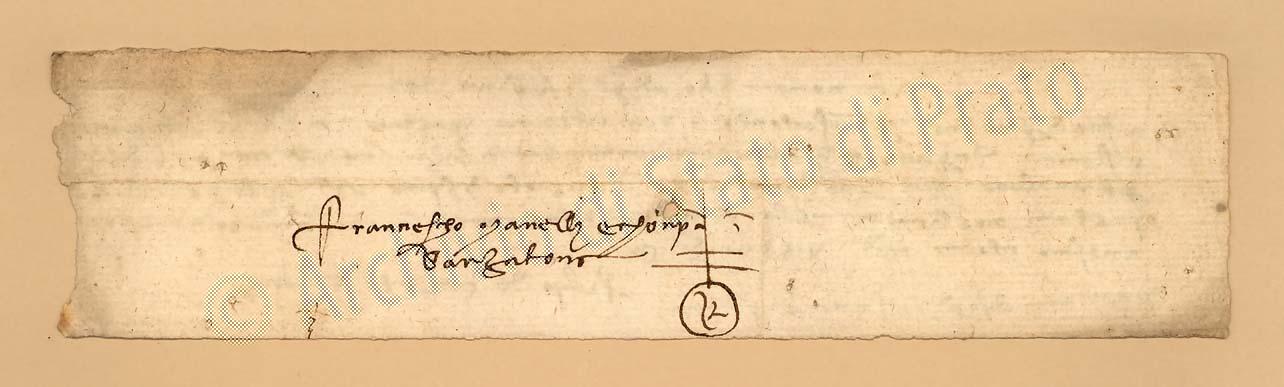 Francescho Manelli e chonp.
Barzalona
© Archivio di Stato di Prato